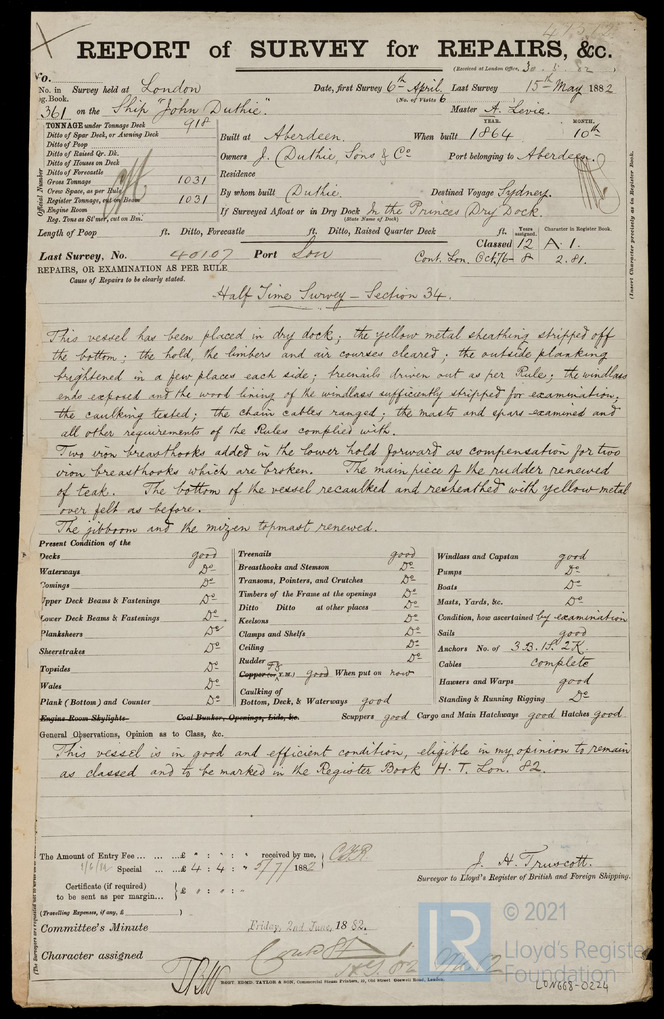 REPORT of SURVEY for REPAIRS, &c.
(Received at London Office, 30 5 82
No.
No. in Survey held at London Date, first Survey 6th April. Last Survey 15th May 1882
g. Book. (No. of Visits 6
361 on the Ship "John Duthie". Master A. Levie.
TONNAGE under Tonnage Deck 918
YEAR. MONTH.
Ditto of Spar Deck, or Awning Deck
Ditto of Poop Built at Aberdeen. When built 1864 10th
Ditto of Raised Qr. Dk.
Ditto of Houses on Deck Owners J. Duthie, Sons & Co Port belonging to Aberdeen.
Ditto of Forecastle
Gross Tonnage 1031 Residence
Crew Space, as per Rule
Register Tonnage, cut on Beam 1031 By whom built Duthie. Destined Voyage Sydney.
Engine Room
Reg. Tons as St'mer, cut on Bm. If Surveyed Afloat or in Dry Dock In the Princes Dry Dock.
(State Name of Dock)
Official Number
(Insert Character precisely as in Register Book.
Length of Poop ft. Ditto, Forecastle ft. Ditto, Raised Quarter Deck ft. Years assigned. Character in Register Book.
Classed 12 A. 1.
Last Survey, No. 40107 Port Lon Cont. Lon. Oct. 76 - 8 2. 81.
REPAIRS, OR EXAMINATION AS PER RULE
Cause of Repairs to be clearly stated.
Half Time Survey - Section 34.
This vessel has been placed in dry dock; the yellow metal sheathing stripped off
the bottom; the hold, the limbers and air courses cleared; the outside planking
brightened in a few places each side; treenails driven out as per Rule; the windlass
ends exposed and the wood lining of the windlass sufficiently stripped for examination;
the caulking tested; the chain cables ranged; the masts and spars examined and
all other requirements of the Rules complied with.
Two iron breasthooks added in the lower hold forward as compensation for two
iron breasthooks which are broken. The main piece of the rudder renewed
of teak. The bottom of the vessel recaulked and resheathed with yellow metal
over felt as before.
The jibboom and the mizen topmast renewed.
Present Condition of the
Decks good
Waterways Do
Comings Do
Upper Deck Beams & Fastenings Do
Lower Deck Beams & Fastenings Do
Planksheers Do
Sheerstrakes Do
Topsides Do
Wales Do
Plank (Bottom) and Counter Do
Treenails good
Breasthooks and Stemson Do
Transoms, Pointers, and Crutches Do
Timbers of the Frame at the openings Do
Ditto Ditto at other places Do
Keelsons Do
Clamps and Shelfs Do
Ceiling Do
Rudder Do
Copper (or Y.M.) good When put on now
Caulking of
Bottom, Deck, & Waterways good
Windlass and Capstan good
Pumps Do
Boats Do
Masts, Yards, &c. Do
Condition, how ascertained by examination
Sails good
Anchors No. of 3 B. 1 S. 2 K.
Cables complete
Hawsers and Warps good
Standing & Running Rigging Do
Engine Room Skylights Coal Bunker, Openings, Lids, &c. Scuppers good Cargo and Main Hatchways good Hatches good
General Observations, Opinion as to Class, &c.
This vessel is in good and efficient condition, eligible in my opinion to remain
as classed and to be marked in the Register Book H. T. Lon. 82.
The Amount of Entry Fee £ : : received by me,
Special £ 4 : 4 : 5/7/1882
Certificate (if required)
to be sent as per margin £ : :
(Travelling Expenses, if any, £ )
J. H. Truscott.
Surveyor to Lloyd's Register of British and Foreign Shipping.
Committee's Minute Friday, 2nd June, 1882.
Character assigned
RONY. EDMD. TAYLOR & SON, Commercial Steam Printers, Old Street Goswell Road, London.
LR © 2021
Lloyd's Register
Foundation
LON668-0224